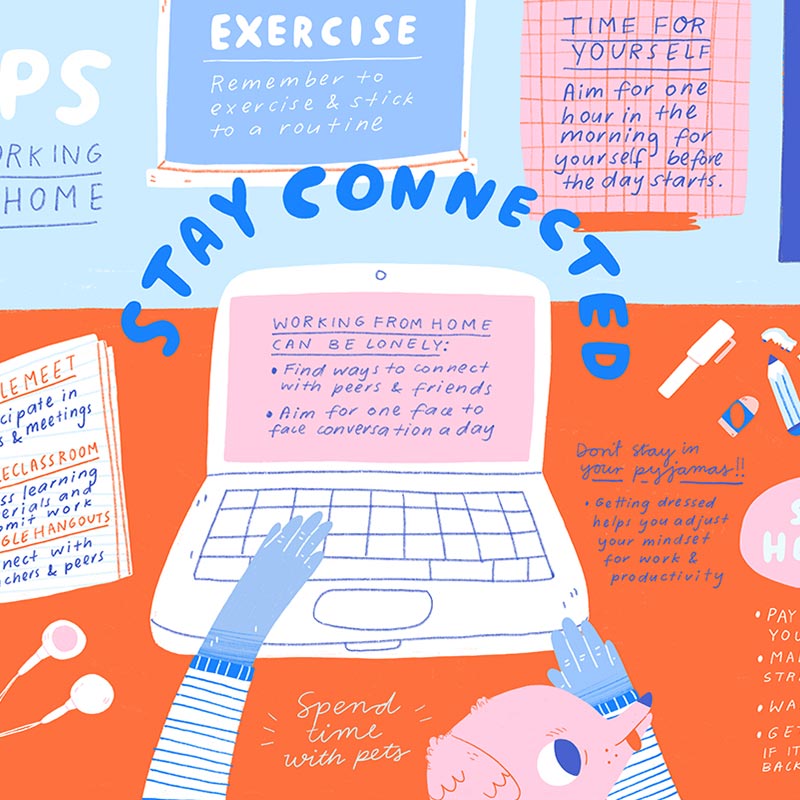 PS
ORKING
HOME
EXERCISE
Remember to
exercise & stick
to a routine
TIME FOR
YOURSELF
Aim for one
hour in the
morning for
yourself before
the day starts.
STAY CONNECTED
WORKING FROM HOME
CAN BE LONELY:
• Find ways to connect
with peers & friends
• Aim for one face to
face conversation a day
LE MEET
cipate in
s & meetings
LECLASSROOM
ss learning
erials and
omit work
GLE HANGOUTS
nnect with
achers & peers
Don't stay in
your pyjamas!!
• Getting dressed
helps you adjust
your mindset
for work &
productivity
S
H
• PAY
YOU
• MA
STR
• WA
• GET
IF IT
BACK
Spend
time
with pets